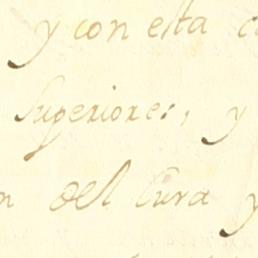 y con esta
Superiores, y
del Cura y